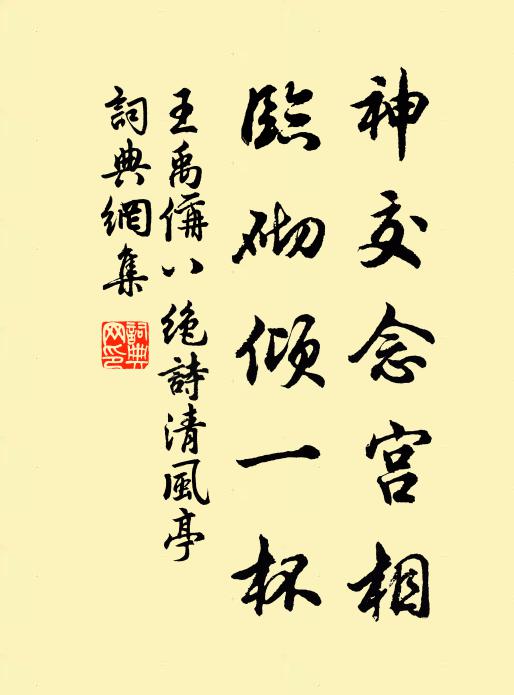 神交念宮相
臨砌傾一杯
王禹偁八絶詩清風亭
詞典網集
詞典網印